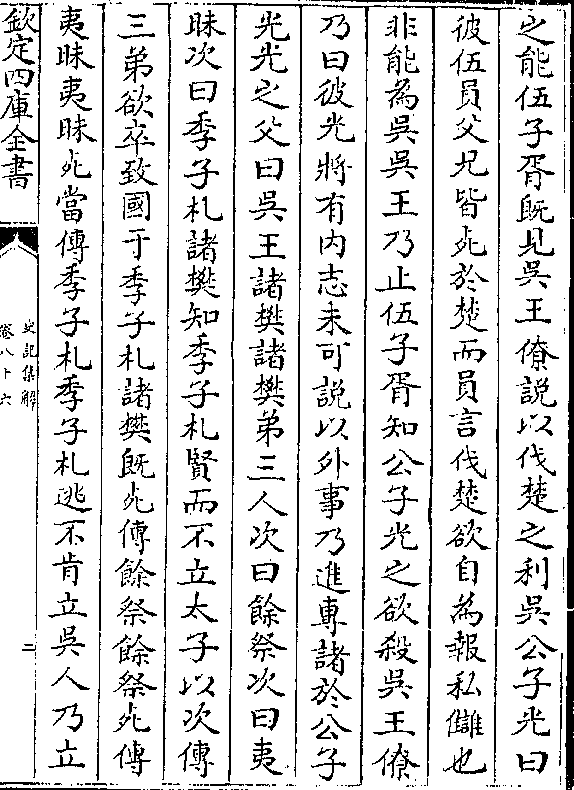 之能伍子胥旣見吳王僚說以伐楚之利吳公子光曰
彼伍員父兄皆死於楚而員言伐楚欲自為報私讎也
非能為吳吳王乃止伍子胥知公子光之欲殺吳王僚
乃曰彼光將有内志未可說以外事乃進專諸於公子
光光之父曰吳王諸樊諸樊弟三人次曰餘祭次曰夷
眜次曰季子札諸樊知季子札賢而不立太子以次傳
三弟欲卒致國于季子札諸樊旣死傳餘祭餘祭死傳
夷眜夷眜死當傳季子札季子札逃不肯立吳人乃立
欽定四庫全書
史記集解
卷八十六
二